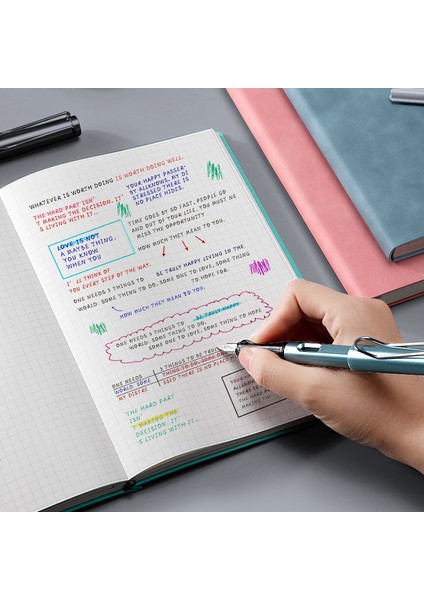 WHATEVER IS WORTH DOING IS WORTH DOING WELL.
THE HARD PART ISN'
T MAKING THE DECISION. IT'
S LIVING WITH IT...
YOUR HAPPY PASSER-
BY ALLKNOWS, MY DI
STRESSED THERE IS
NO PLACE HIDES.
LOVE IS NOT
A MAYBE THING.
YOU KNOW
WHEN YOU
TIME GOES BY SO FAST, PEOPLE GO
AND OUT OF YOUR LIFE. YOU MUST NE
MISS THE OPPORTUNITY
HOW MUCH THEY MEAN TO YOU.
I' LL THINK OF
YOU EVERY STEP OF THE WAY.
BE TRULY HAPPY LIVING IN THE
ONE NEEDS 3 THINGS TO
WORLD: SOME THING TO DO, SOME ONE TO LOVE, SOME THING
TO HOPE FOR.
HOW MUCH THEY MEAN TO YOU.
ONE NEEDS 3 THINGS TO BE TRULY HAPPY
WORLD: SOME THING TO DO,
SOME ONE TO LOVE, SOME THING TO HOPE
ONE NEEDS 3 THINGS TO BE TRU
WORLD: SOME THING TO DO, SOME
MY DISTRE SSED THERE IS NO PLACE
THE HARD PART
ISN'
T MAKING THE
DECISION. IT'
S LIVING WITH IT...